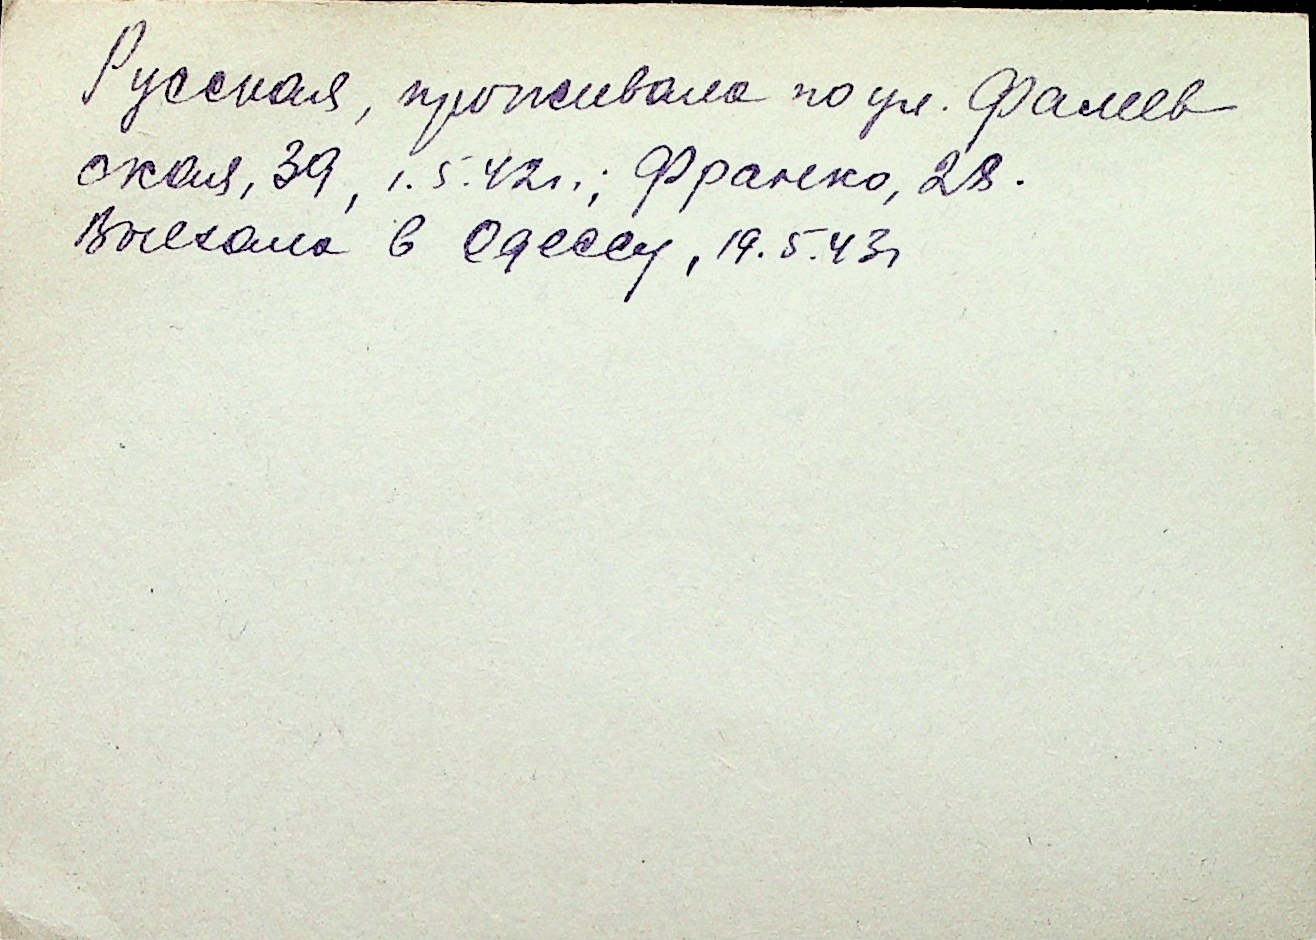 Русская, проживала по ул. Фалеев
ская, 39, 1.5.42г.; Франко, 28.
Выехала в Одессу, 19.5.43г